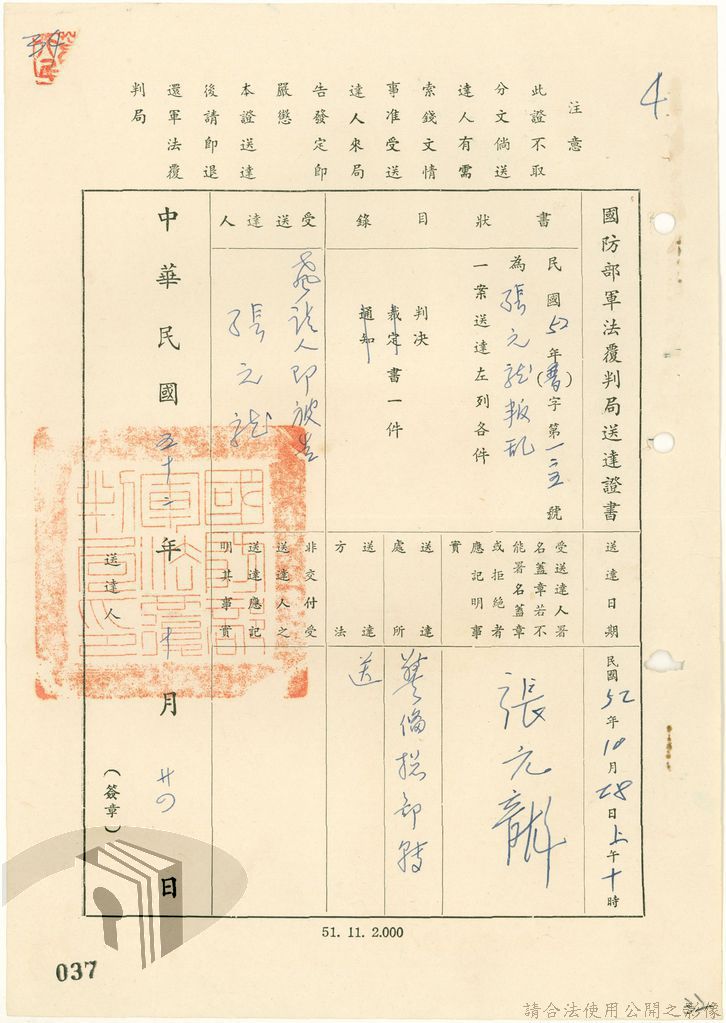 4
國防部軍法覆判局送達證書
送達日期
民國52年10月28日上午十時
書狀目錄
民國52年(書)字第一三五號
為張元龍叛乱
一案送達左列各件
判決
裁定書一件
通知
受送達人署
名蓋章若不
能署名蓋章
或拒絕者
應記明事
實
張元龍
送達處所
送達方法
送
受送達人
聲請人即被告
張元龍
非交付受
送達人之
送達應記
明其事實
中華民國五十二年十月廿四日
送達人
(簽章)
注意
此證不取
分文倘送
達人有需
索錢文情
事准受送
達人來局
告發定即
嚴懲
本證送達
後請即退
還軍法覆
判局
國防部軍法覆判局印
51. 11. 2.000
037
請合法使用公開之影像